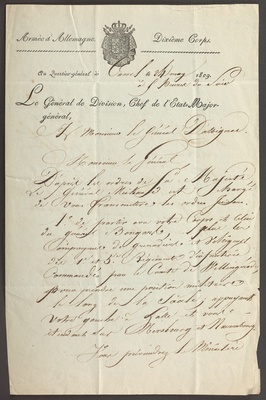 Armée d'Allemagne. Dixième Corps.
Au Quartier-général à Cassel le 24 may 1809
à 8 heures du Soir
Le Général de Division, Chef de l'Etat-Major-
général,
A Monsieur le Général D'Albignac.
Monsieur le Général
D'après les ordres de Sa Majesté
le Général est chargé
de vous transmettre les ordres
1° de partir avec votre Corps et celui
du général Bongars, plus les
Compagnies de grenadiers et Voltigeurs
des 1er et 5e Régiment d'infanterie
Commandés par le Comte de Wellingerode
pour prendre une position militaire
le long de la Saale, appuyant
votre gauche à Halle et vous
étendant sur Mersebourg et Naumbourg
J'en préviendrai le Ministre